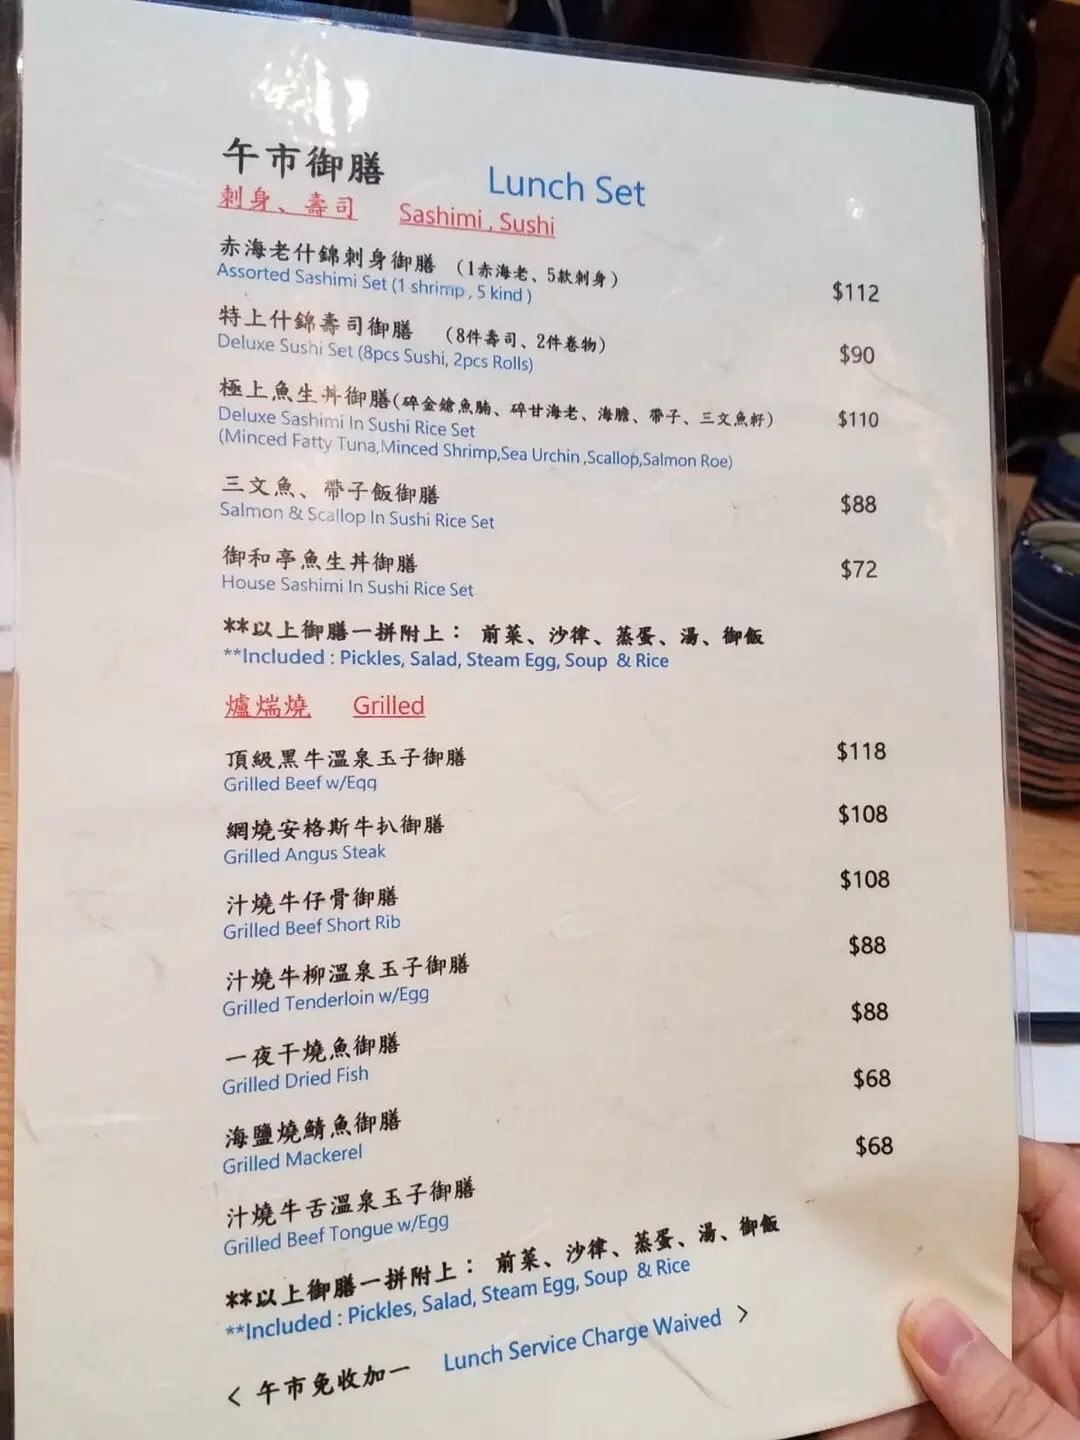 午市御膳 Lunch Set
刺身、壽司 Sashimi , Sushi
赤海老什錦刺身御膳 (1赤海老、5款刺身)
Assorted Sashimi Set (1 shrimp , 5 kind ) $112
特上什錦壽司御膳 (8件壽司、2件卷物)
Deluxe Sushi Set (8pcs Sushi, 2pcs Rolls) $90
極上魚生丼御膳(碎金鎗魚腩、碎甘海老、海膽、帶子、三文魚籽) $110
Deluxe Sashimi In Sushi Rice Set
(Minced Fatty Tuna,Minced Shrimp,Sea Urchin ,Scallop,Salmon Roe)
三文魚、帶子飯御膳 $88
Salmon & Scallop In Sushi Rice Set
御和亭魚生丼御膳 $72
House Sashimi In Sushi Rice Set
**以上御膳一拼附上： 前菜、沙律、蒸蛋、湯、御飯
**Included : Pickles, Salad, Steam Egg, Soup & Rice
爐煓燒 Grilled
頂級黑牛溫泉玉子御膳 $118
Grilled Beef w/Egg
網燒安格斯牛扒御膳 $108
Grilled Angus Steak
汁燒牛仔骨御膳 $108
Grilled Beef Short Rib
汁燒牛柳溫泉玉子御膳 $88
Grilled Tenderloin w/Egg
一夜干燒魚御膳 $88
Grilled Dried Fish
海鹽燒鯖魚御膳 $68
Grilled Mackerel
汁燒牛舌溫泉玉子御膳 $68
Grilled Beef Tongue w/Egg
**以上御膳一拼附上： 前菜、沙律、蒸蛋、湯、御飯
**Included : Pickles, Salad, Steam Egg, Soup & Rice
< 午市免收加一 Lunch Service Charge Waived >